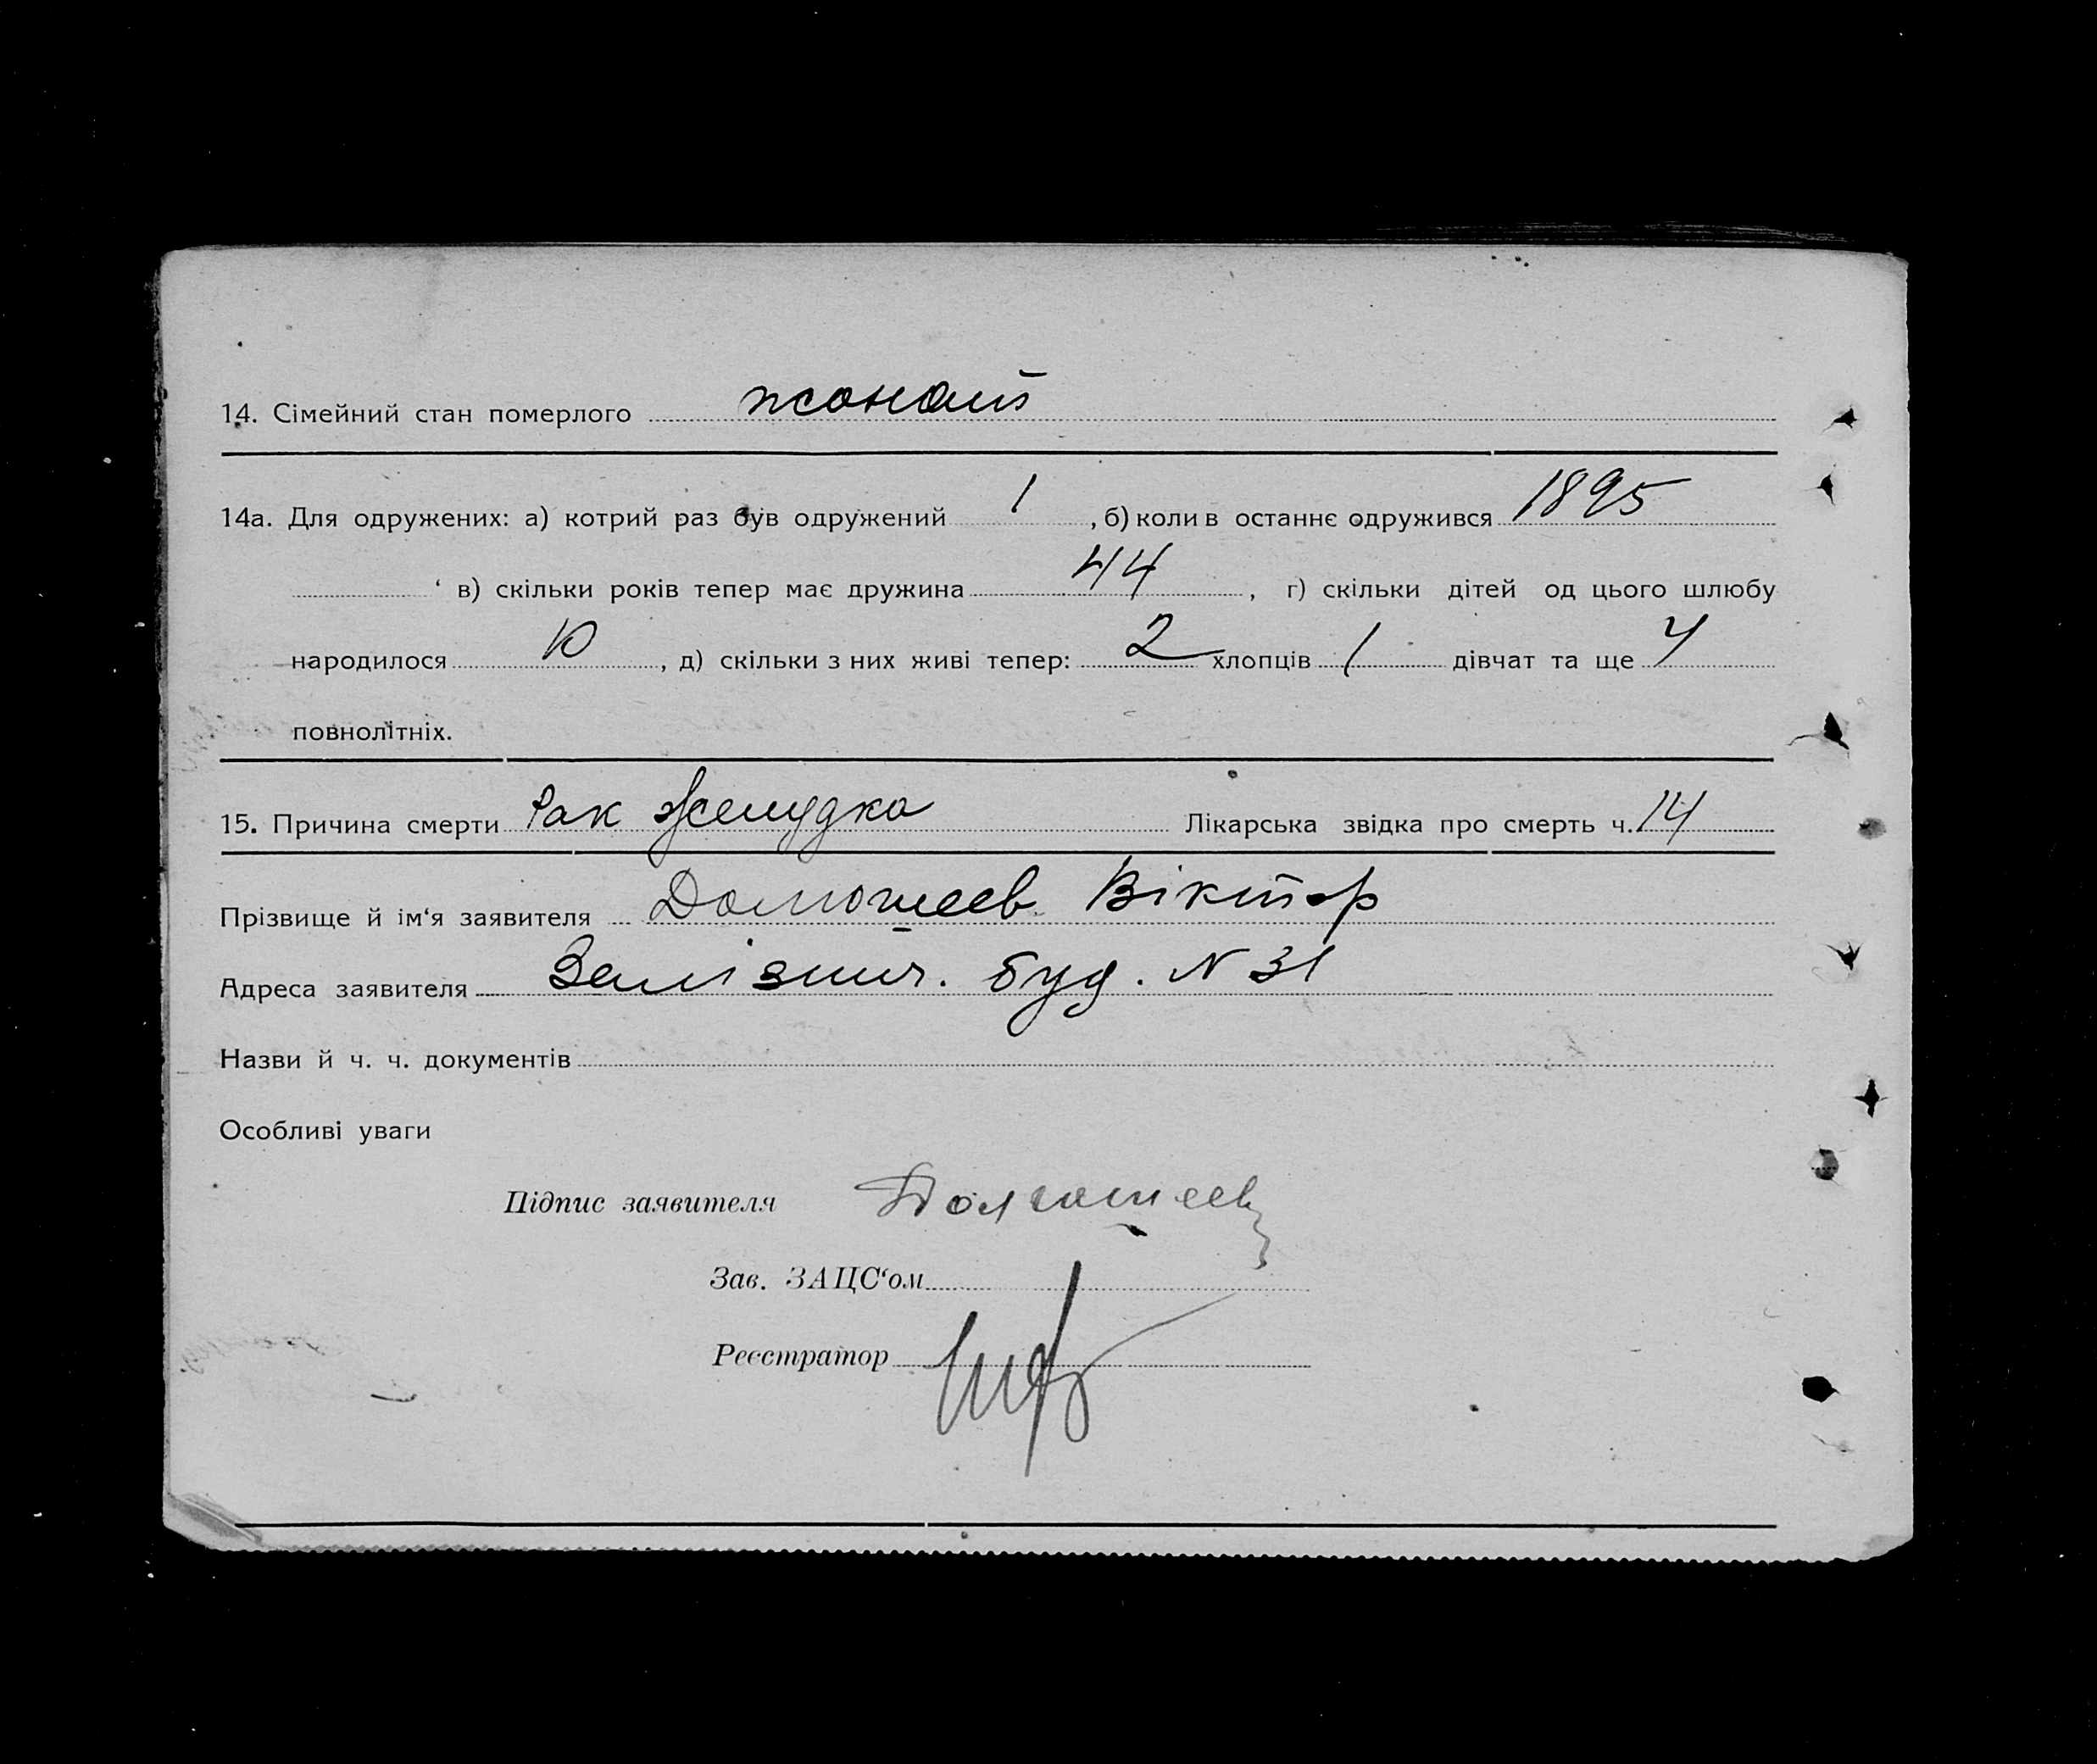 14. Сімейний стан померлого жонат
14а. Для одружених: а) котрий раз був одружений 1, б) коли в останнє одружився 1895
в) скільки років тепер має дружина 44, г) скільки дітей од цього шлюбу
народилося 10, д) скільки з них живі тепер: 2 хлопців 1 дівчат та ще 4
повнолітніх.
15. Причина смерти Рак желудка Лікарська звідка про смерть ч. 14
Прізвище й ім‘я заявителя Віктор
Адреса заявителя Залізнич. буд. N 31
Назви й ч. ч. документів
Особливі уваги
Підпис заявителя
Зав. ЗАЦС‘ом
Реєстратор